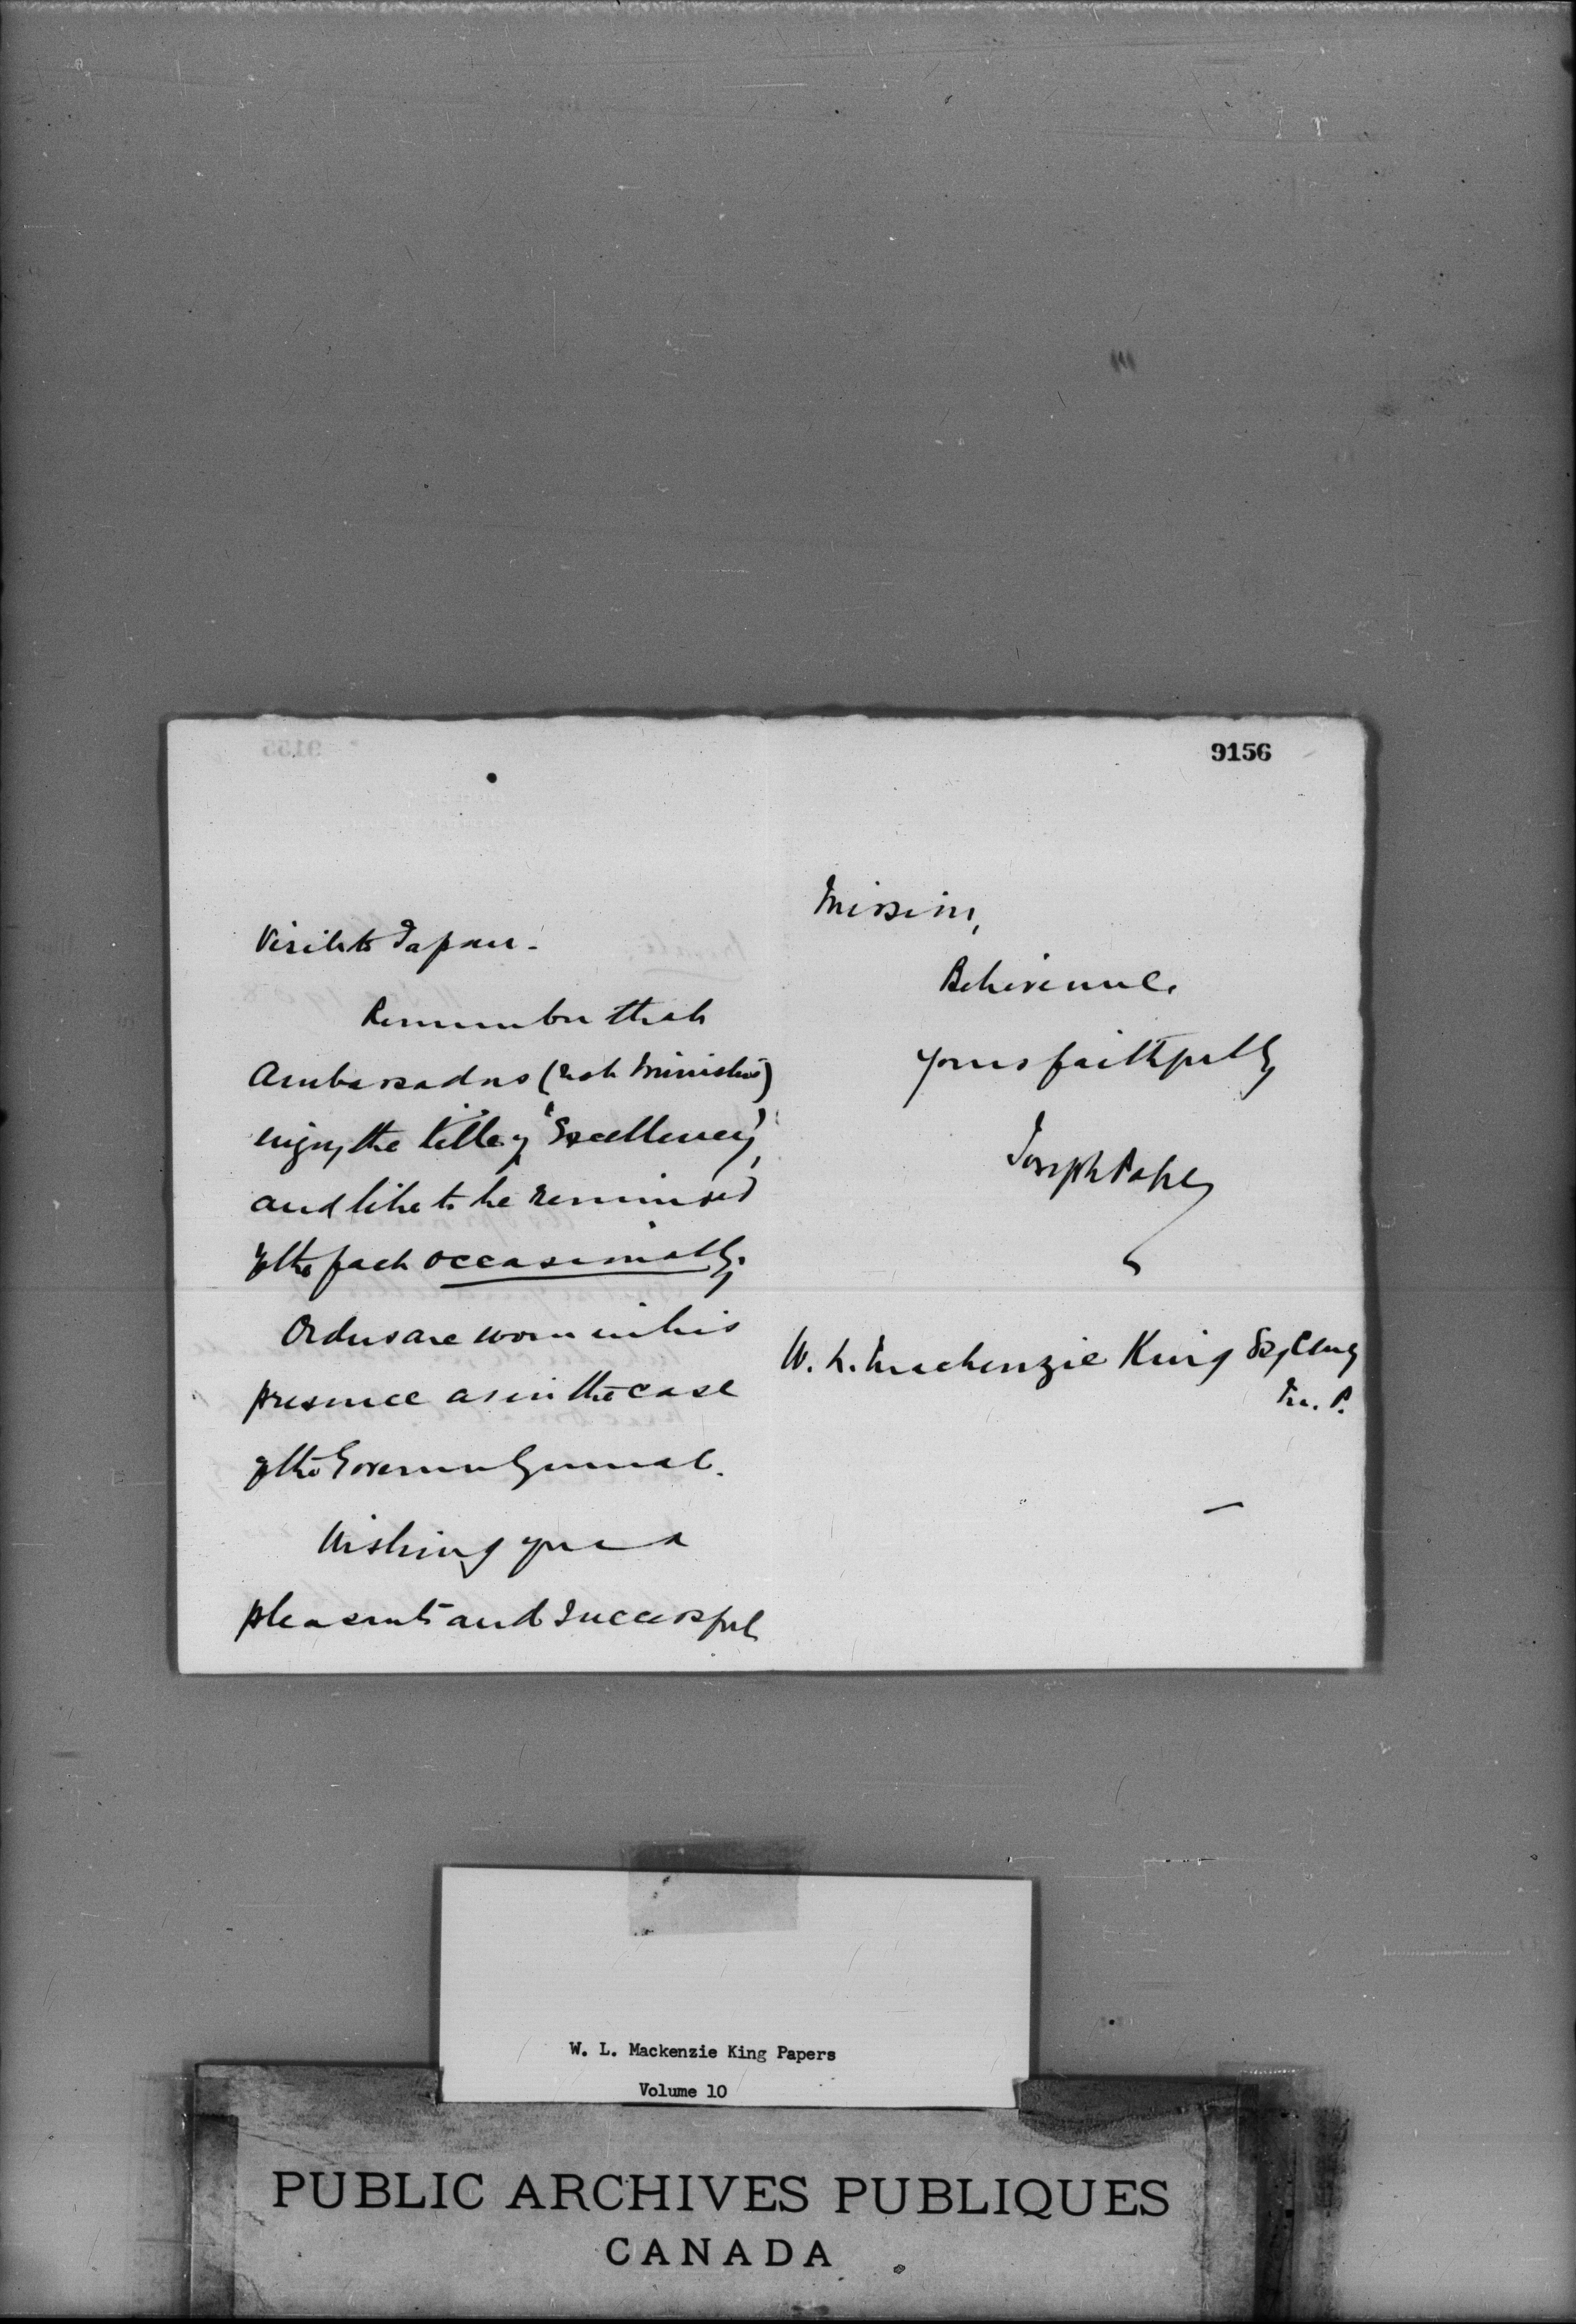 9156
Visit to Japan.
Remember that
Ambassadors (not Ministers)
enjoy the title of "Excellency",
and like to be reminded
of the fact occasionally.
Orders are worn in his
presence as in the case
of the Governor General.
Wishing you a
pleasant and successful
Mission,
Believe me,
yours faithfully
Joseph Pope
W. L. Mackenzie King Esq, CMG
M. P.
W. L. Mackenzie King Papers
Volume 10
PUBLIC ARCHIVES PUBLIQUES
CANADA